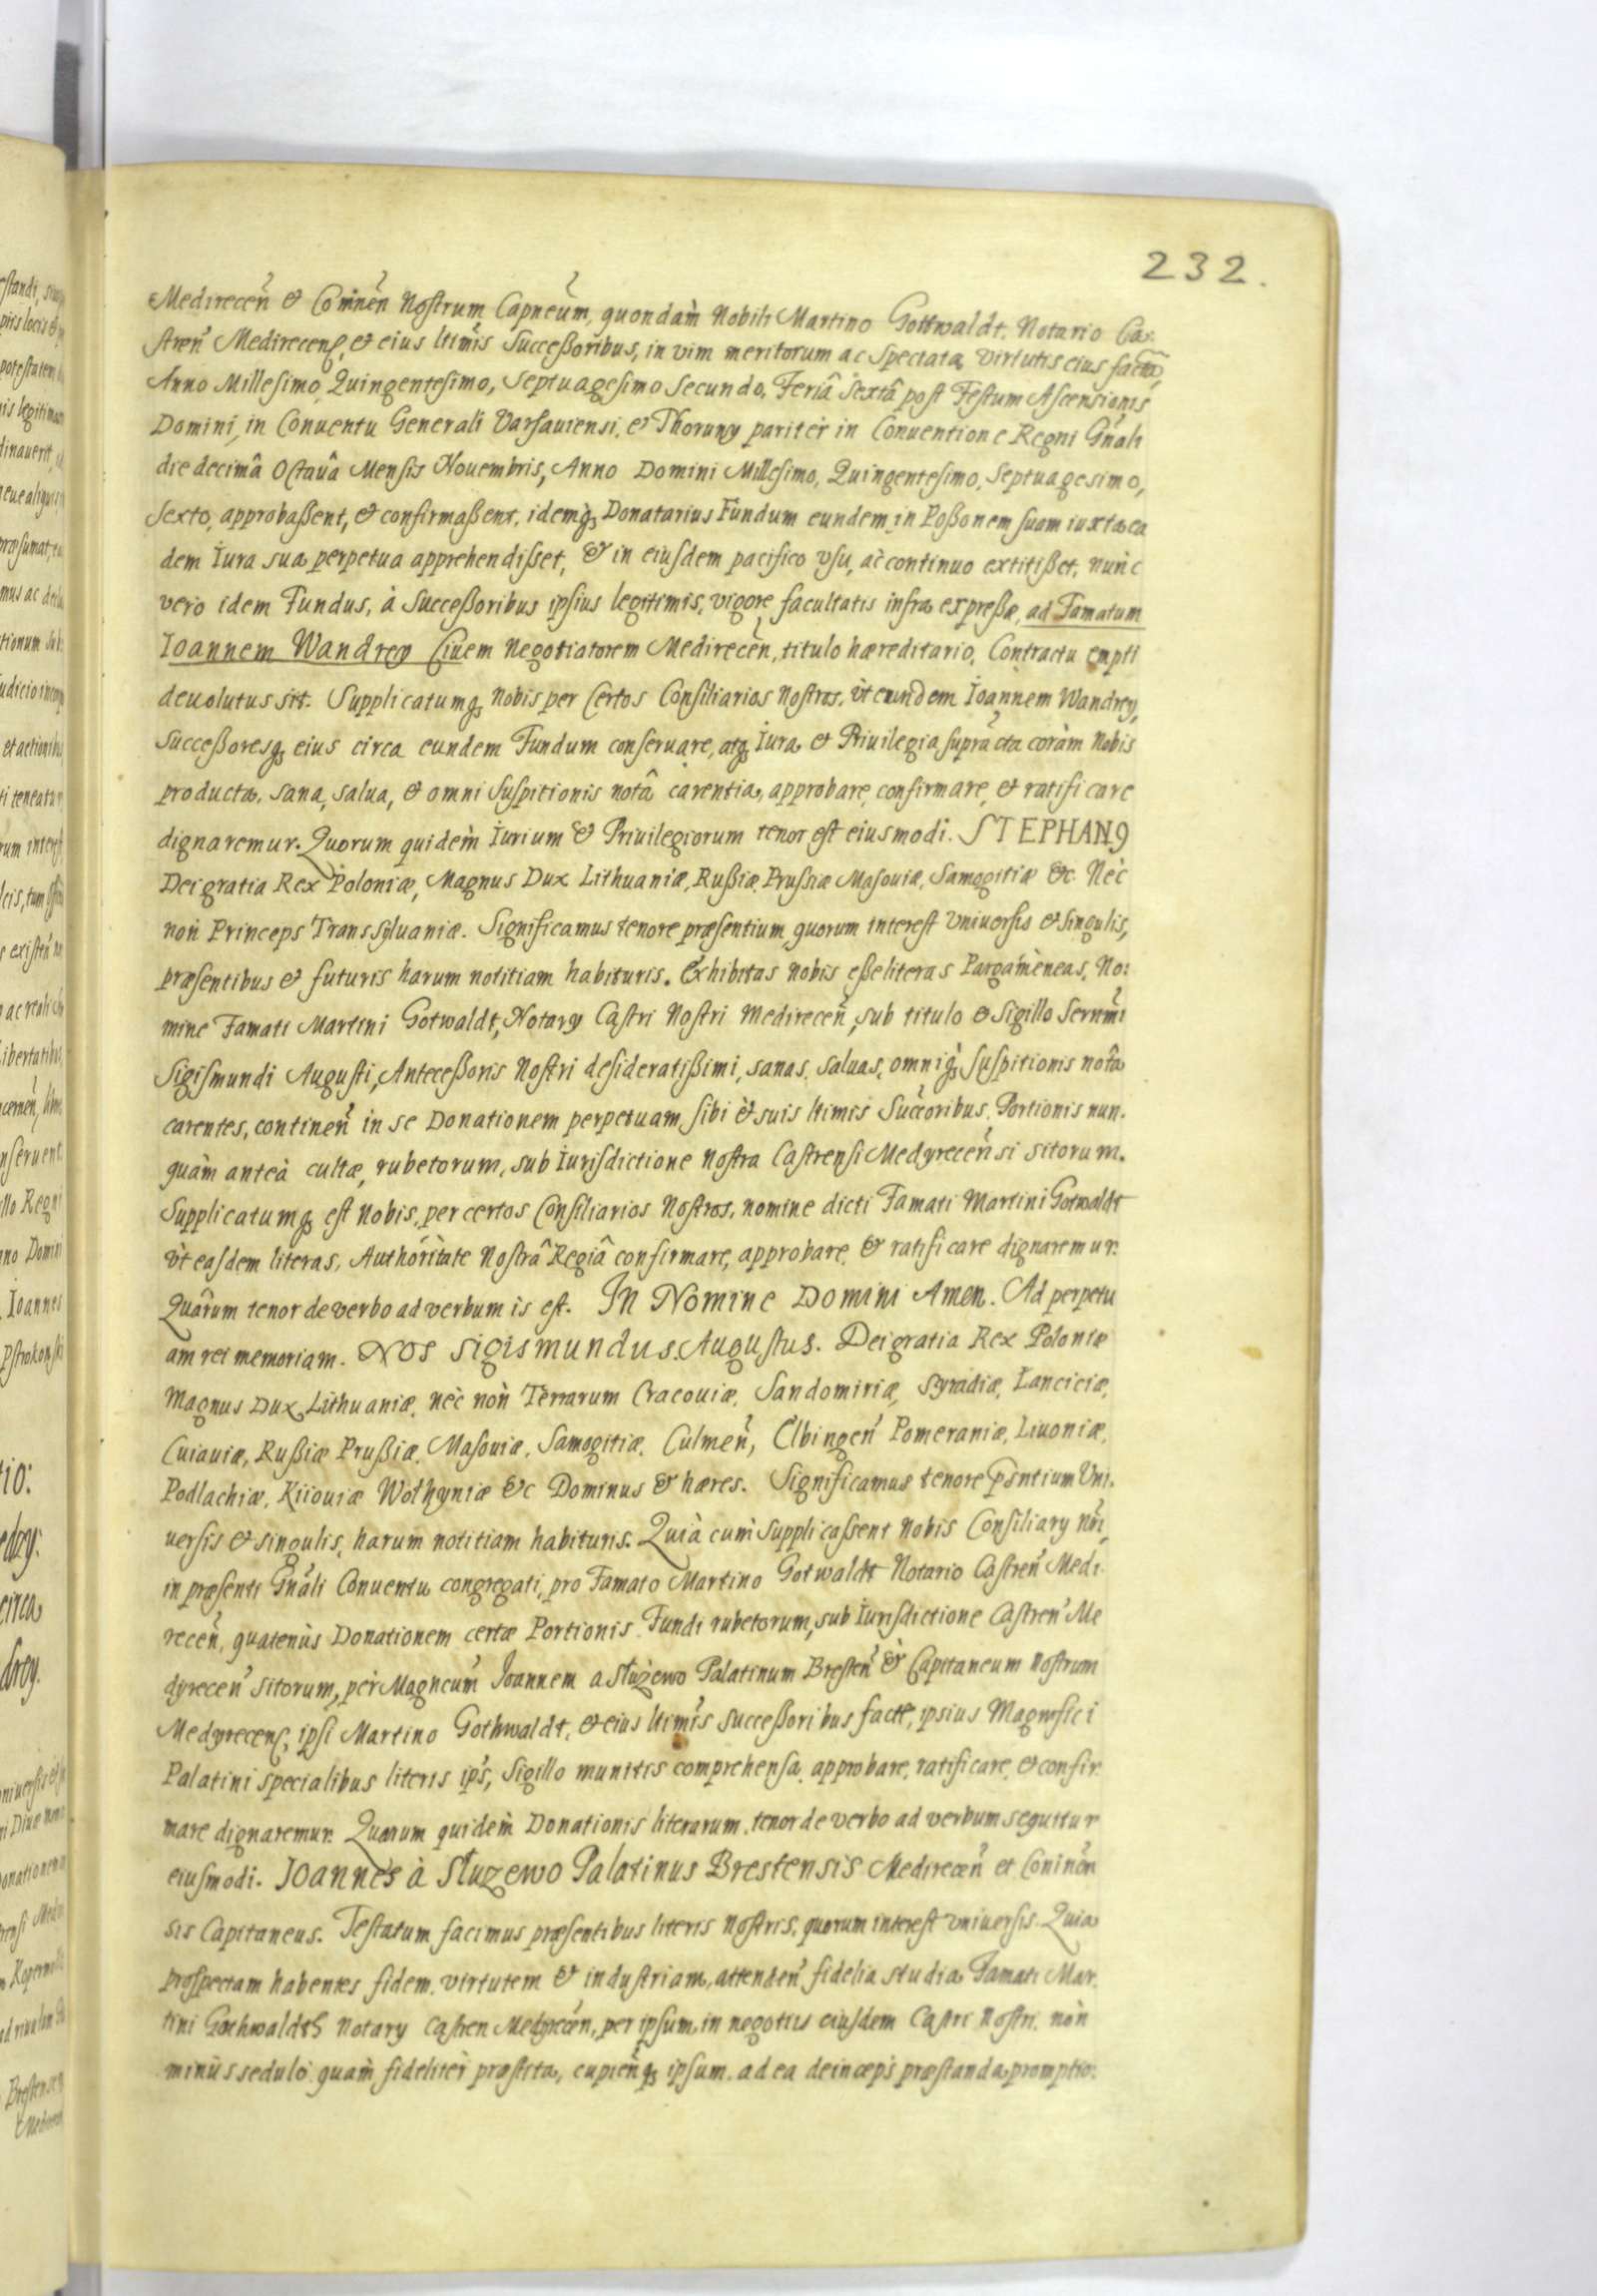 232.
Medirecen̄ & Coninēn Nostrum Capneūm, quondam̀ Nobili Martino Gottwaldt, Notario Ca:
stren̄ Medirecens, & eius ltimis Successoribus, in vim meritorum ac Spectatæ virtutis eius facta,
Anno Millesimo, Quingentesimo, Septuagesimo Secundo, Feriâ Sextâ post Festum Ascensionis
Domini, in Conuentu Generali Varsauiensi, & Thoruny pariter in Conuentione Regni Gnāli
die decimâ Octauâ Mensis Nouembris, Anno Domini Millesimo, Quingentesimo, Septuagesimo,
Sexto, approbaßent, & confirmaßent, idemq; Donatarius Fundum eundem in Poßonem suam iuxta ea
dem Iura sua perpetua apprehendißet, & in eiusdem pacifico vsu, ac̀ continuo extitißet, nunc̀
vero idem Fundus, à Succeßoribus ipsius legitimis, vigore facultatis infra expreßæ, ad Famatum
Ioannem Wandrey Ciuem Negotiatorem Medirecēn, titulo hæreditario, Contractu empti
deuolutus sit. Supplicatumq; Nobis per Certos Consiliarios Nostros, ùt eundem Ioannem Wandrey,
Succeßoresq; eius circa eundem Fundum conseruare, atq; Iura & Priuilegia supra cta coràm Nobis
producta, sana, salua, & omni Suspitionis notâ carentia, approbare, confirmare, & ratificare
dignaremur. Quorum quidem̀ Iurium & Priuilegiorum tenor est eiusmodi. STEPHAN9
Dei gratia Rex Poloniæ, Magnus Dux Lithuaniæ, Rußiæ, Prussiæ Masouiæ, Samogitiæ &c. Nec̀
non̄ Princeps Transsyluaniæ. Significamus tenore præsentium quorum interest Vniuersis & Singulis,
præsentibus & futuris harum notitiam habituris. Exhibitas Nobis eße literas Pargameneas, No:
mine Famati Martini Gotwaldt, Notary Castri Nostri Medirecen̄, sub titulo & Sigillo Sernmī
Sigismundi Augusti, Anteceßoris Nostri desideratißimi, sanas, saluas, omniq; Suspitionis notâ
carentes, continen̄ in se Donationem perpetuam, sibi & suis ltimis Succoribus, Portionis nun.
quàm anteà cultæ, rubetorum, sub Iurisdictione Nostra Castrensi Medyrecensi sitorum.
Supplicatumq; est Nobis, per certos Consiliarios Nostros, nomine dicti Famati Martini Gotwaldt
ùt easdem literas, Authoritate Nostrâ Regiâ confirmare, approbare, & ratificare dignaremur.
Quarum tenor de verbo ad verbum is est. In Nomine Domini Amen. Ad perpetu
am rei memoriam. NOS Sigismundus Augustus. Dei gratia Rex Poloniæ
Magnus Dux Lithuaniæ, nec̀ non̄ Terrarum Cracouiæ, Sandomiriæ, Syradiæ, Lanciciæ,
Cuiauiæ, Rußiæ Prußiæ, Masouiæ, Samogitiæ, Culmen̄, Elbingen̄ Pomeraniæ, Liuoniæ,
Podlachiæ, Kiiouiæ Wolhyniæ &c Dominus & hæres. Significamus tenore pöntium Vni.
uersis & singulis, harum notitiam habituris. Quià cum̀ Supplicassent Nobis Consiliary nr̄i,
in præsenti Gnāli Conuentu congregati, pro Famato Martino Gotwaldt Notario Castren̄ Medi.
recen̄, quatenùs Donationem certæ Portionis Fundi rubetorum, sub Iurisdictione Castren̄ Me
dyrecen̄ sitorum, pèr Magncum̄ Joannem a Służewo Palatinum Bresten̄ & Capitaneum Nostrum
Medyrecens, ipsi Martino Gothwaldt, & eius ltimis Successoribus factæ, ipsius Magnifici
Palatini specialibus literis ips̄, Sigillo munitis comprehensa, approbare, ratificare, & confir.
mare dignaremur. Quarum quidem̀ Donationis literarum, tenor de verbo ad verbum sequitur
eiusmodi. Joannes à Służewo Palatinus Brestensis Medirecen̄ et Coninēn
sis Capitaneus. Testatum facimus præsentibus literis Nostris, quorum interest vniuersis. Quia
prospectam habentes fidem, virtutem & industriam, attenden̄ fidelia studia Famati Mar.
tini Gothwaldth Notary Castren Medyrecen̄, per ipsum in negotiis eiusdem Castri Nostri, non̄
minùs sedulò quàm fidelitèr præstita, cupien̄q; ipsum ad ea deinceps̀ præstanda promptio: